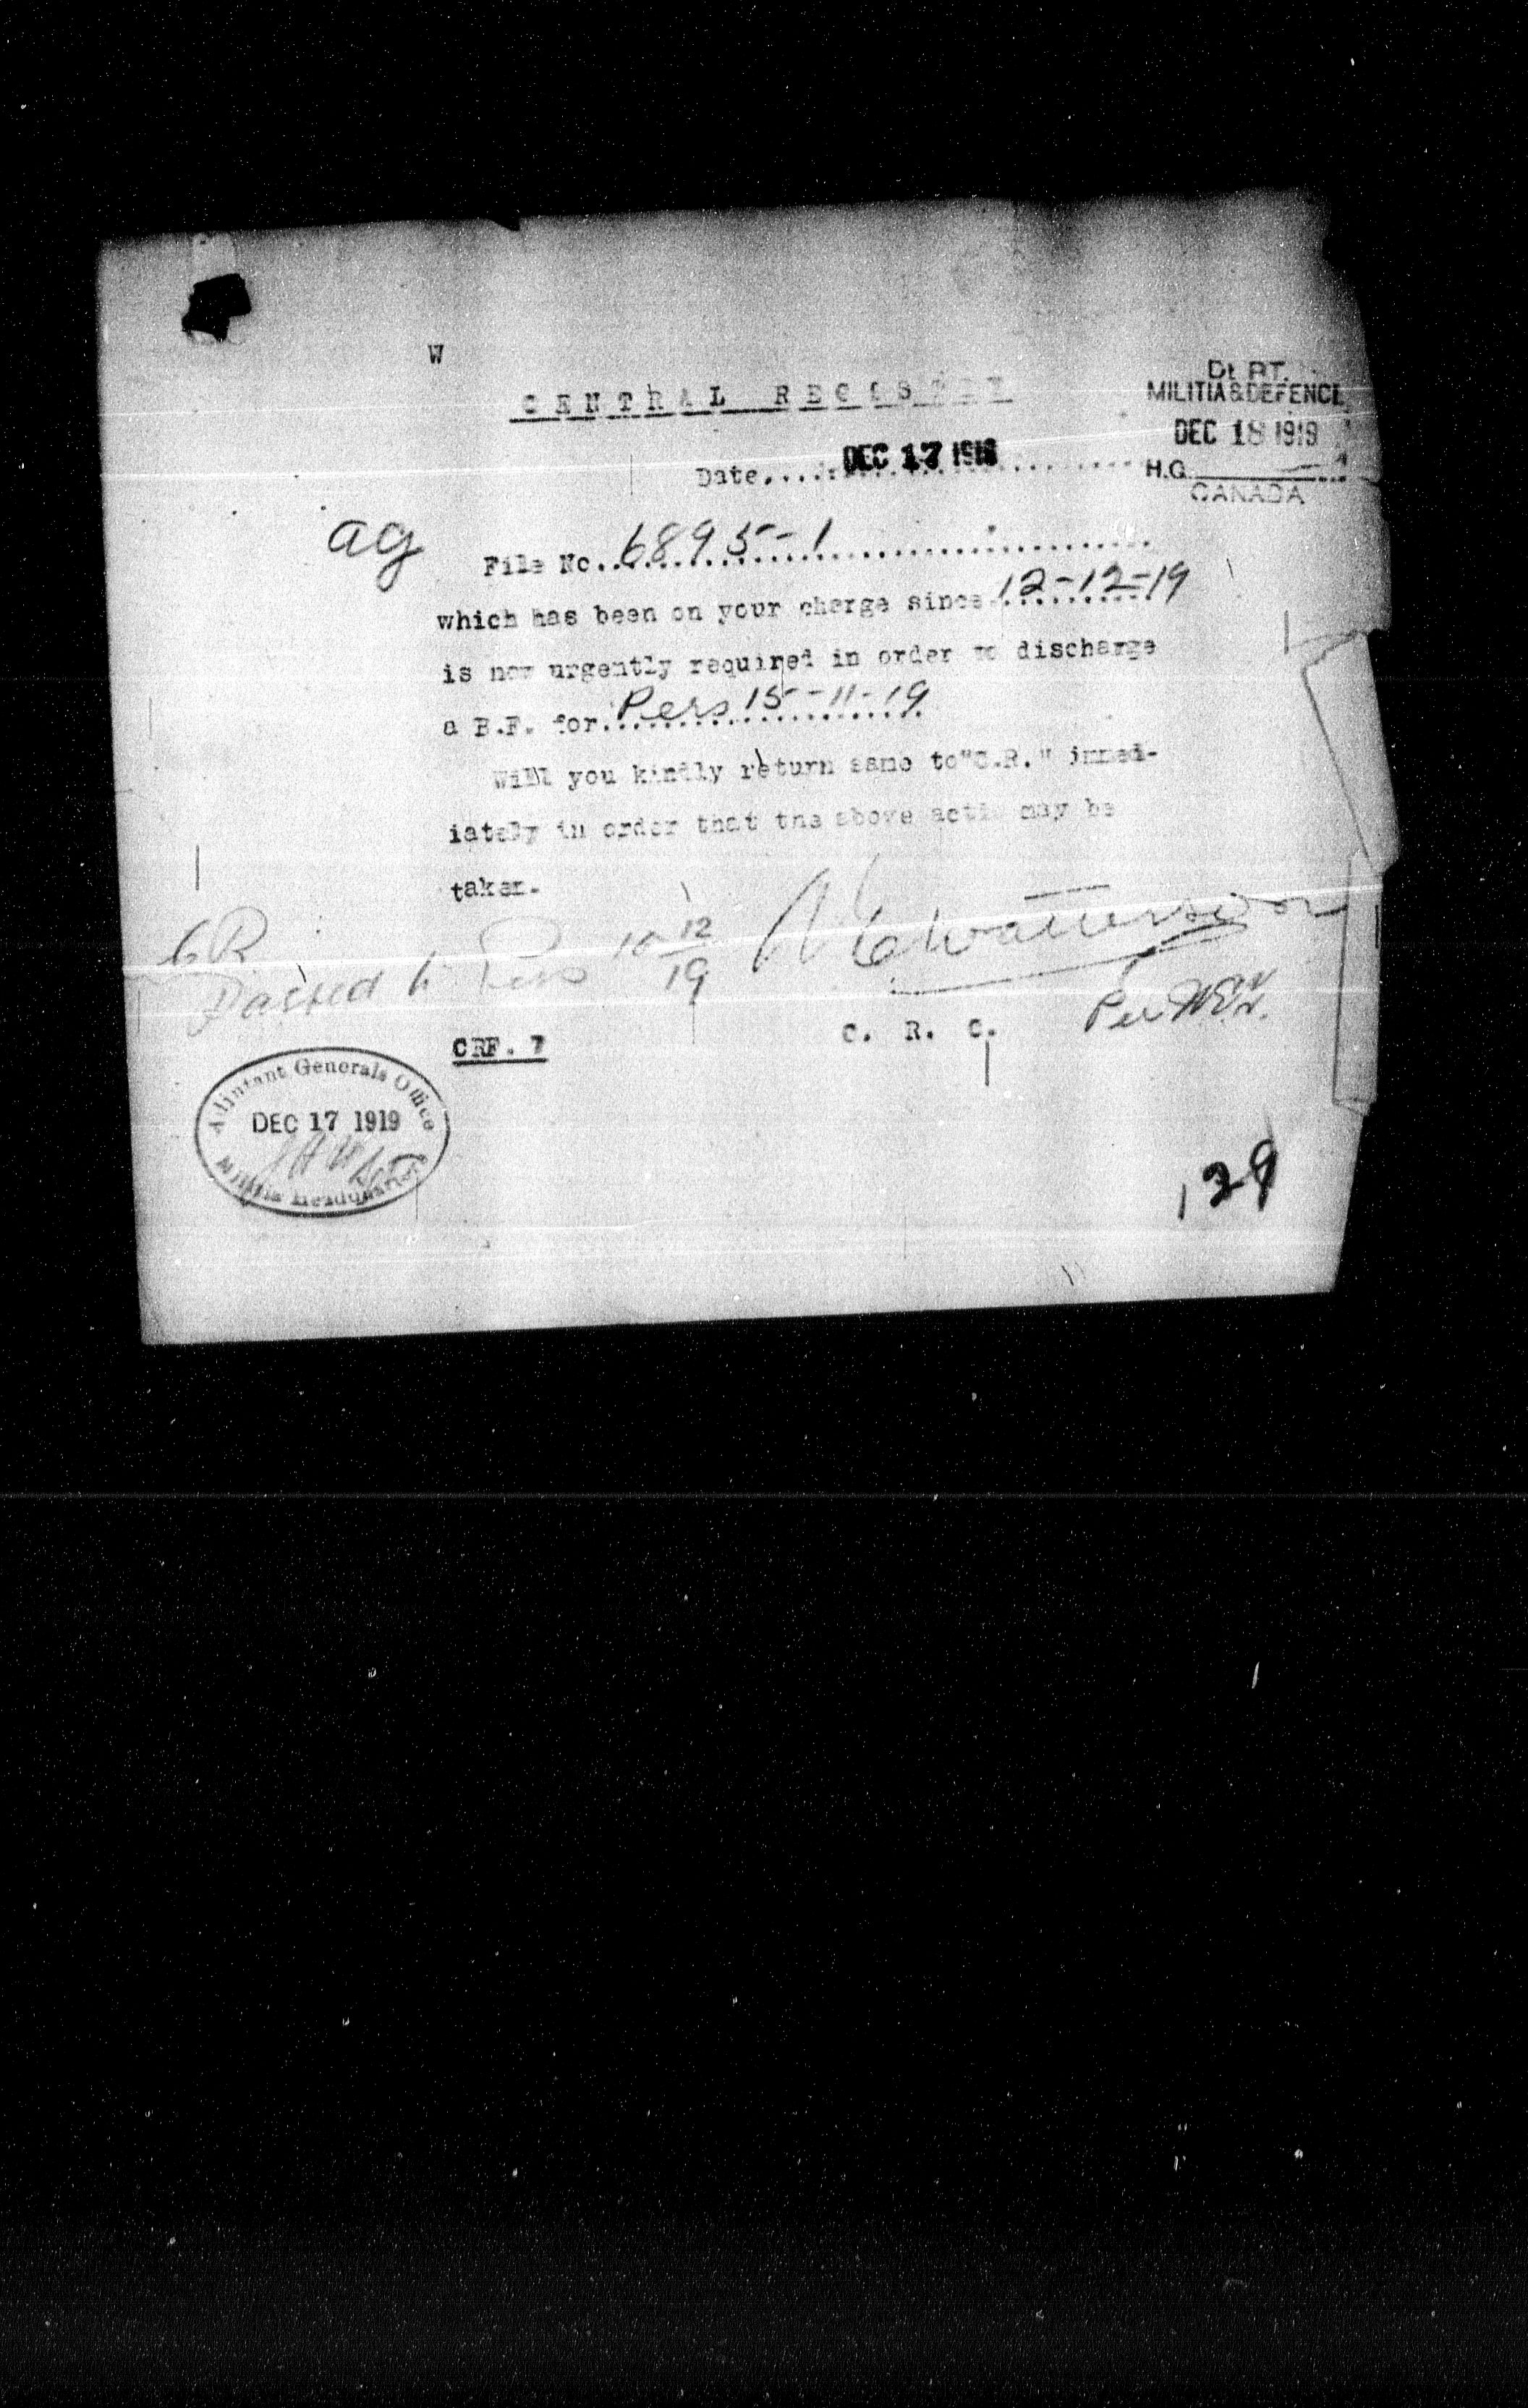 W
CENTRAL REGISTRY
DEPT.
MILITIA & DEFENCE
DEC 18 1919
H.Q.
CANADA
Date.... DEC 17 1919
ag
File No. 6895-1
which has been on your charge since 12-12-19
is now urgently required in order to discharge
a B.F. for Pers 15-11-19
Will you kindly return same to "C.R." immed-
iately in order that the above action may be
taken.
CR
Passed to Pers 10 12/19
Watterson
Per
C. R. C.
CRF. 7
Adjutant Generals Office
DEC 17 1919
Militia Headquarters
129